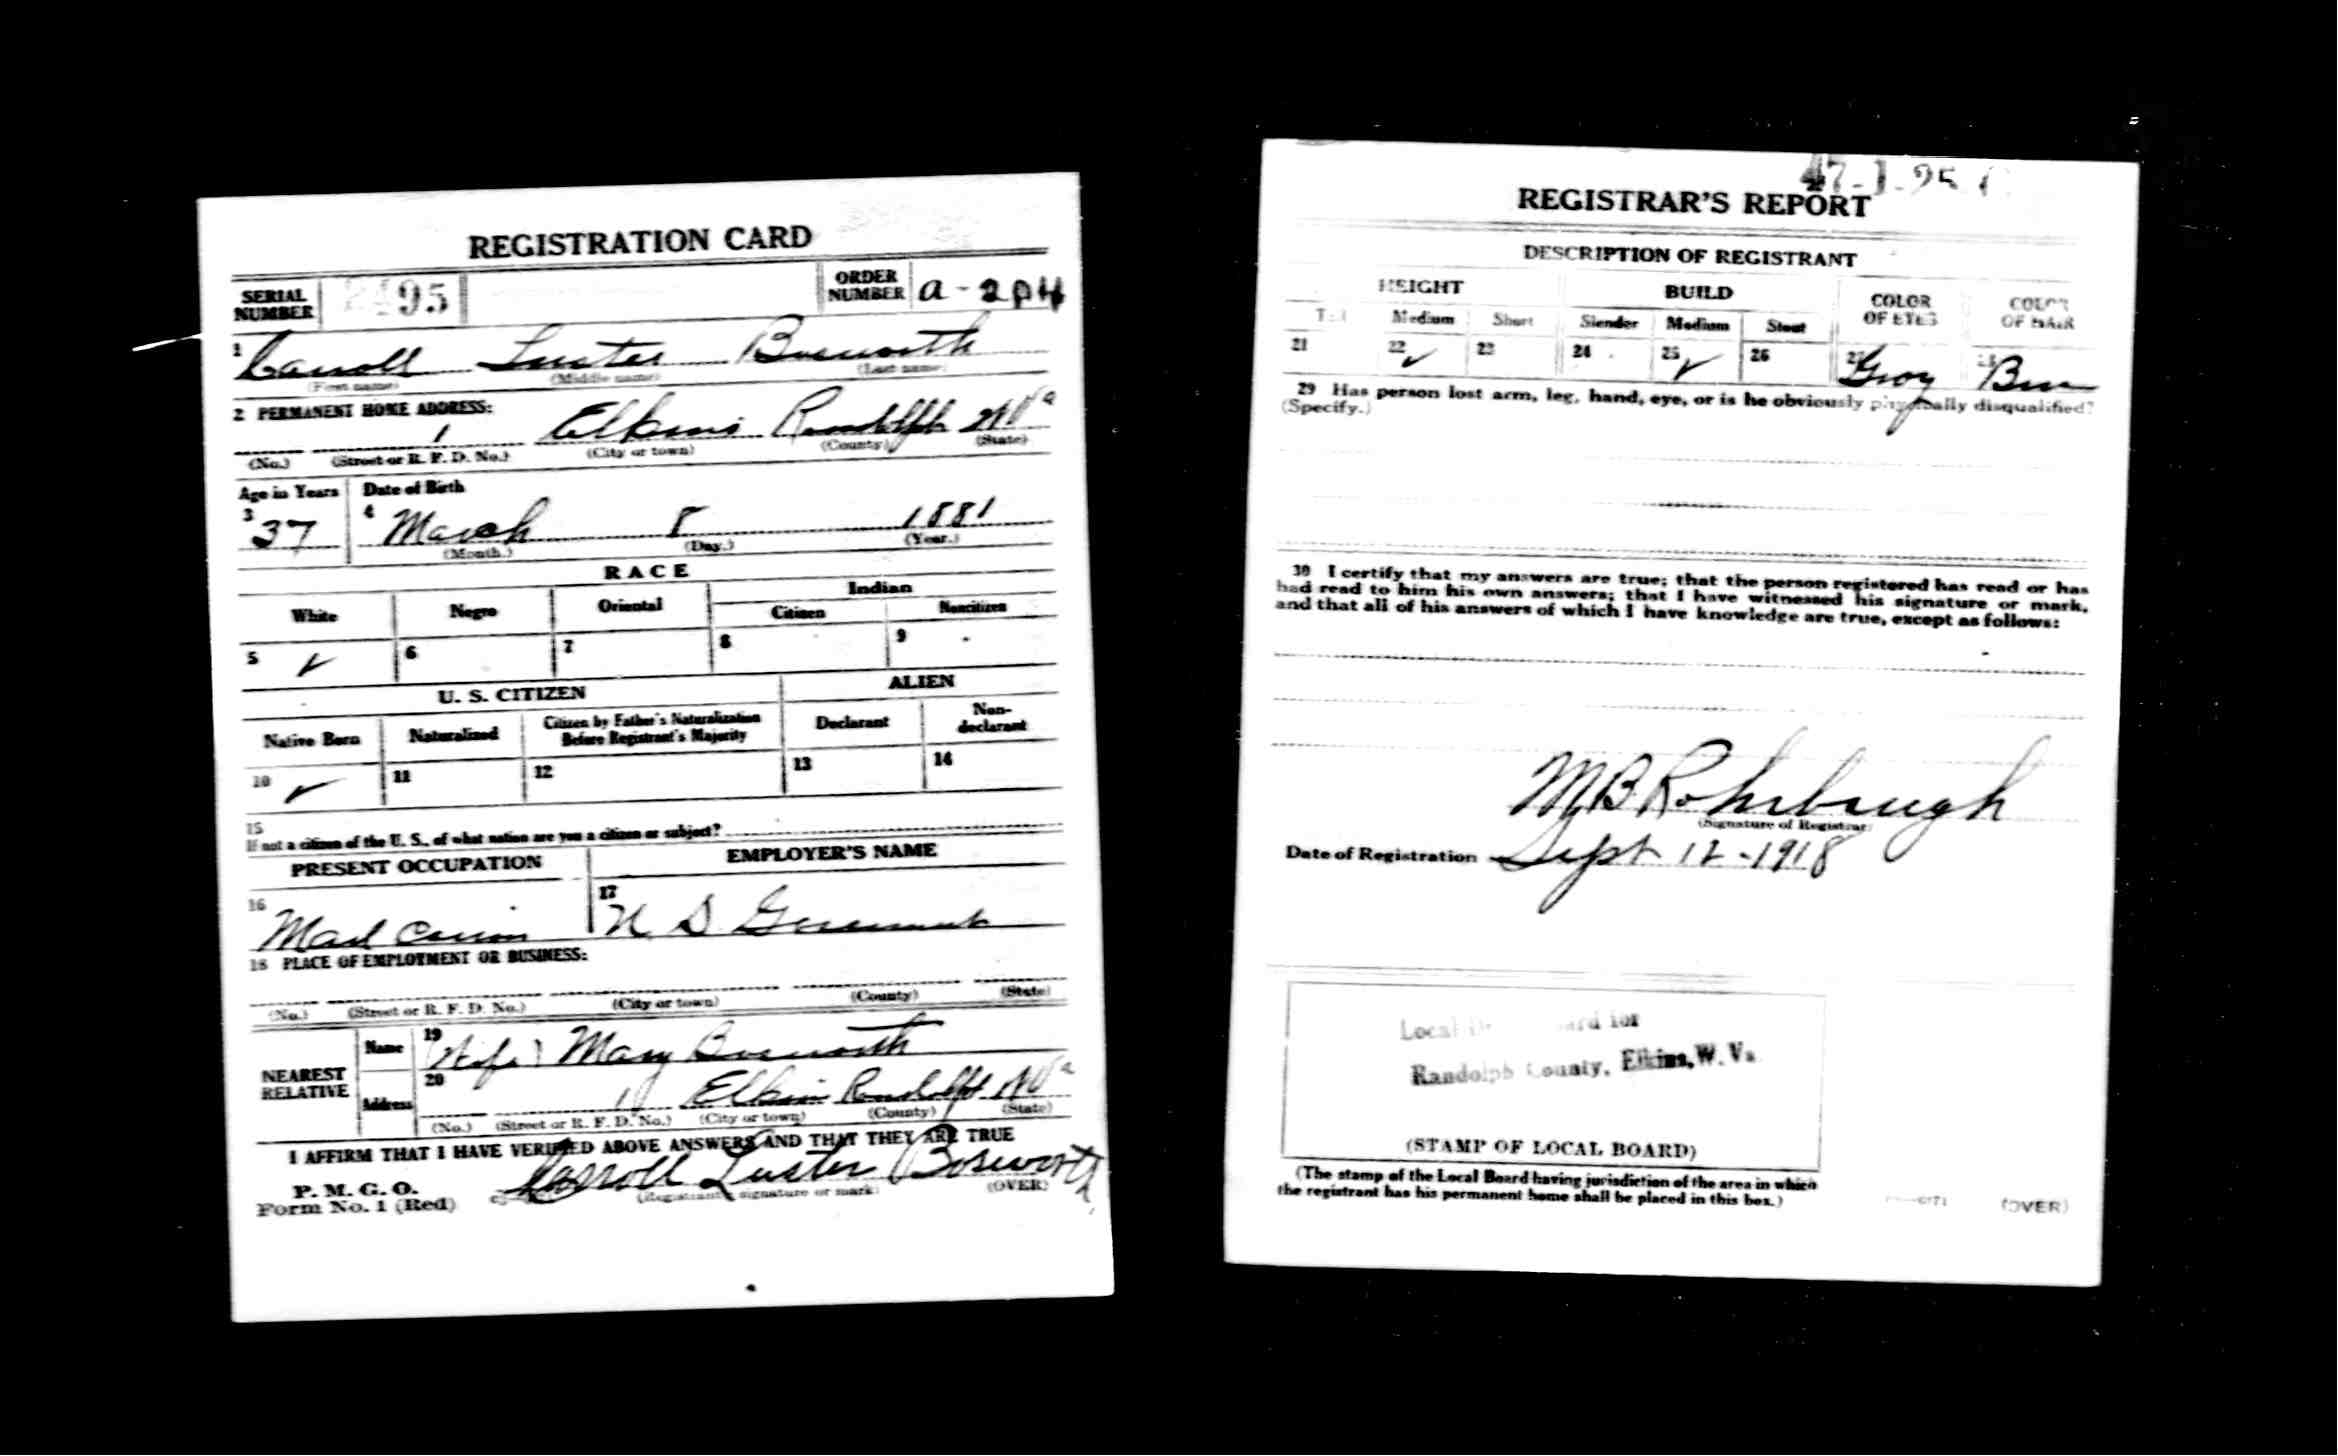 REGISTRATION CARD
SERIAL NUMBER 95 ORDER NUMBER a-
1 Carroll Luster Bosworth
(First name) (Middle name) (Last name)
2 PERMANENT HOME ADDRESS:
1 Elkins Randolph W Va
(No.) (Street or R. F. D. No.) (City or town) (County) (State)
Age in Years Date of Birth
3 37 4 March 8 1881
(Month.) (Day.) (Year.)
RACE
White Negro Oriental Indian
Citizen Noncitizen
5 ✓ 6 7 8 9
U. S. CITIZEN ALIEN
Native Born Naturalized Citizen by Father's Naturalization Before Registrant's Majority Declarant Non-declarant
10 ✓ 11 12 13 14
15
If not a citizen of the U. S., of what nation are you a citizen or subject?
PRESENT OCCUPATION EMPLOYER'S NAME
16 Mail Carrier 17 U S Government
18 PLACE OF EMPLOYMENT OR BUSINESS:
(No.) (Street or R. F. D. No.) (City or town) (County) (State)
NEAREST RELATIVE Name 19 (Wife) Mary Bosworth
Address 20 1 Elkins Randolph W Va
(No.) (Street or R. F. D. No.) (City or town) (County) (State)
I AFFIRM THAT I HAVE VERIFIED ABOVE ANSWERS AND THAT THEY ARE TRUE
P. M. G. O.
Form No. 1 (Red) Carroll Luster Bosworth
(Registrant's signature or mark) (OVER)
REGISTRAR'S REPORT
DESCRIPTION OF REGISTRANT
HEIGHT BUILD COLOR OF EYES COLOR OF HAIR
Tall Medium Short Slender Medium Stout
21 22 ✓ 23 24 25 ✓ 26 27 Gray 28
29 Has person lost arm, leg, hand, eye, or is he obviously physically disqualified?
(Specify.)
30 I certify that my answers are true; that the person registered has read or has
had read to him his own answers; that I have witnessed his signature or mark,
and that all of his answers of which I have knowledge are true, except as follows:
M B Rohrbaugh
(Signature of Registrar)
Date of Registration Sept 12 - 1918
Local Board for
Randolph County, Elkins, W. Va
(STAMP OF LOCAL BOARD)
(The stamp of the Local Board having jurisdiction of the area in which
the registrant has his permanent home shall be placed in this box.)
(OVER)